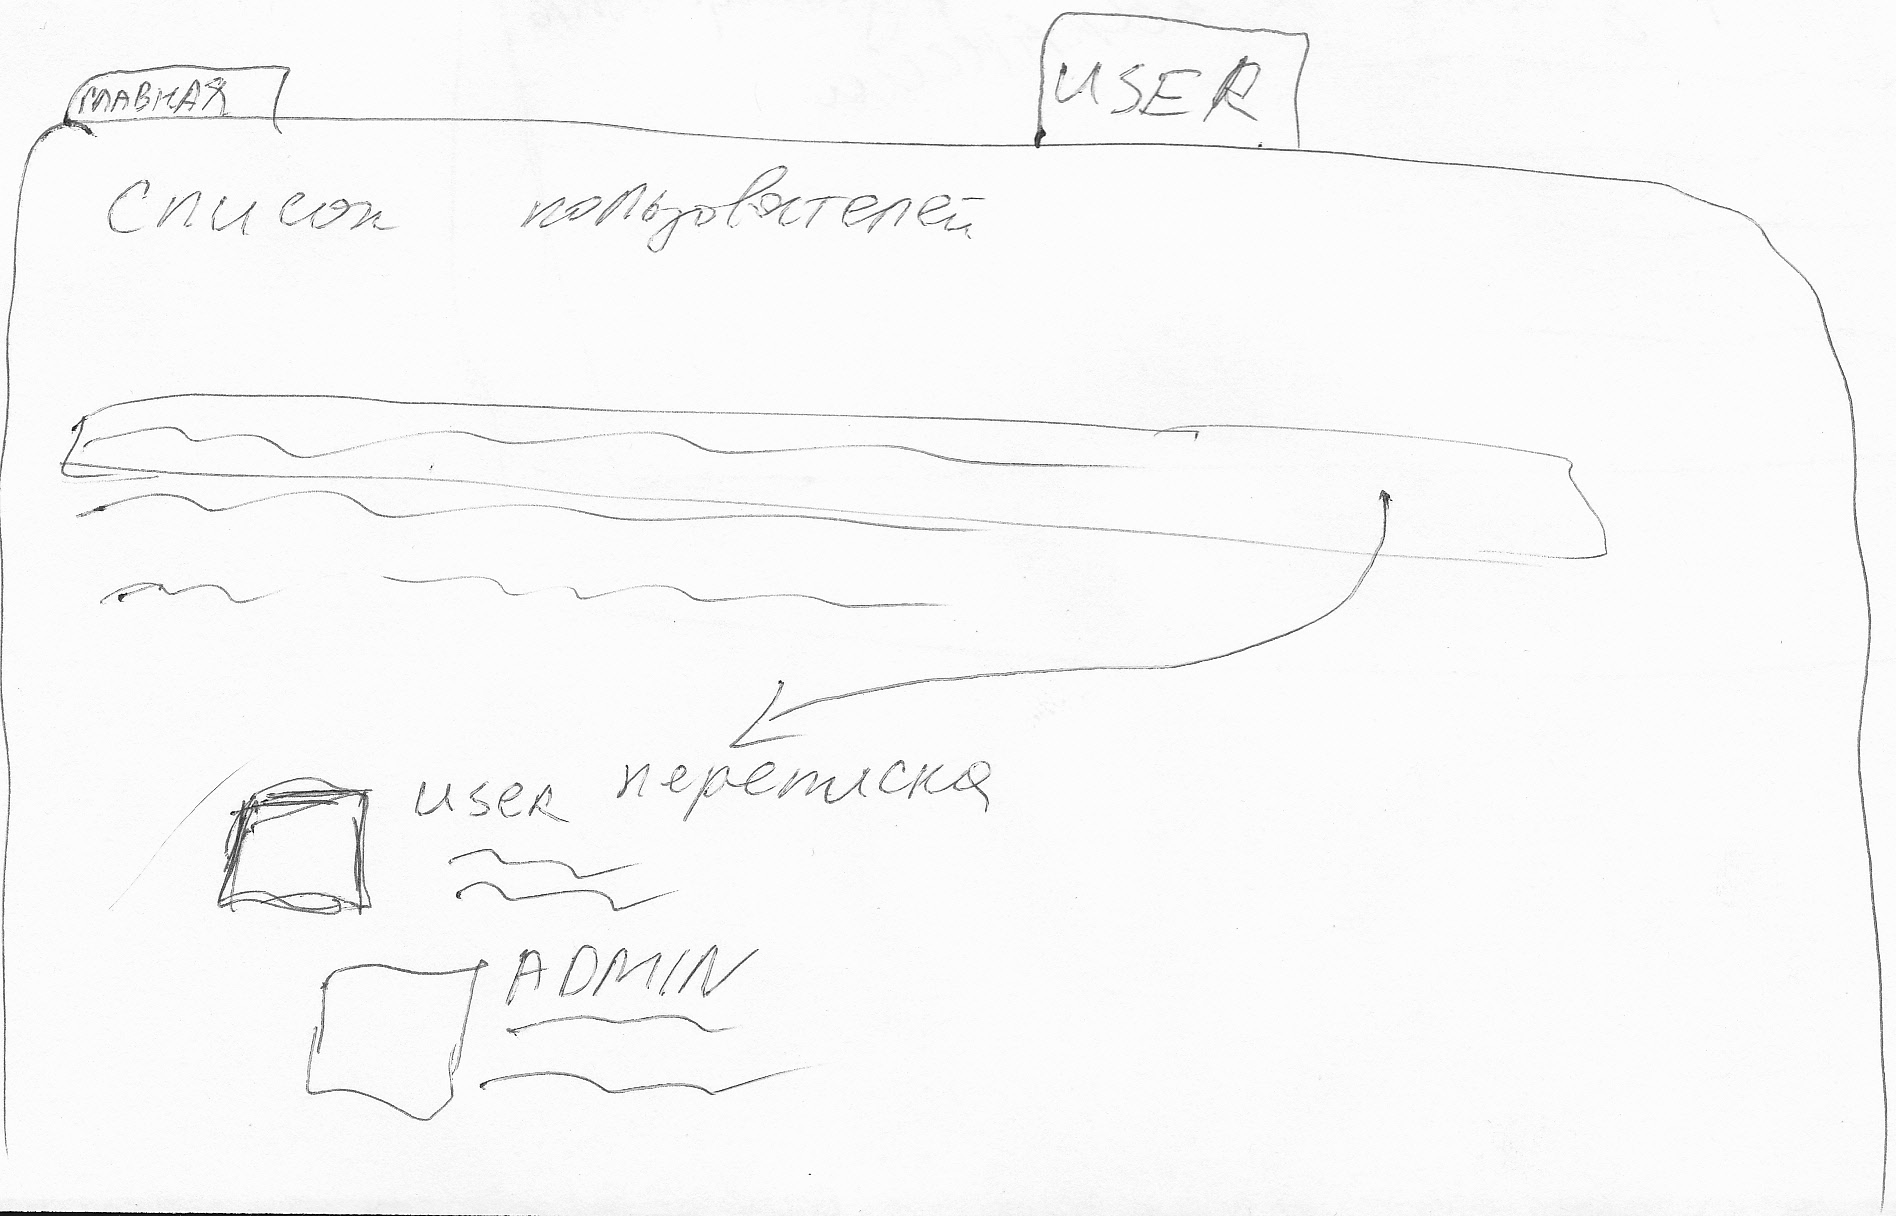 ГЛАВНАЯ
USER
Список пользователей
USER переписка
ADMIN